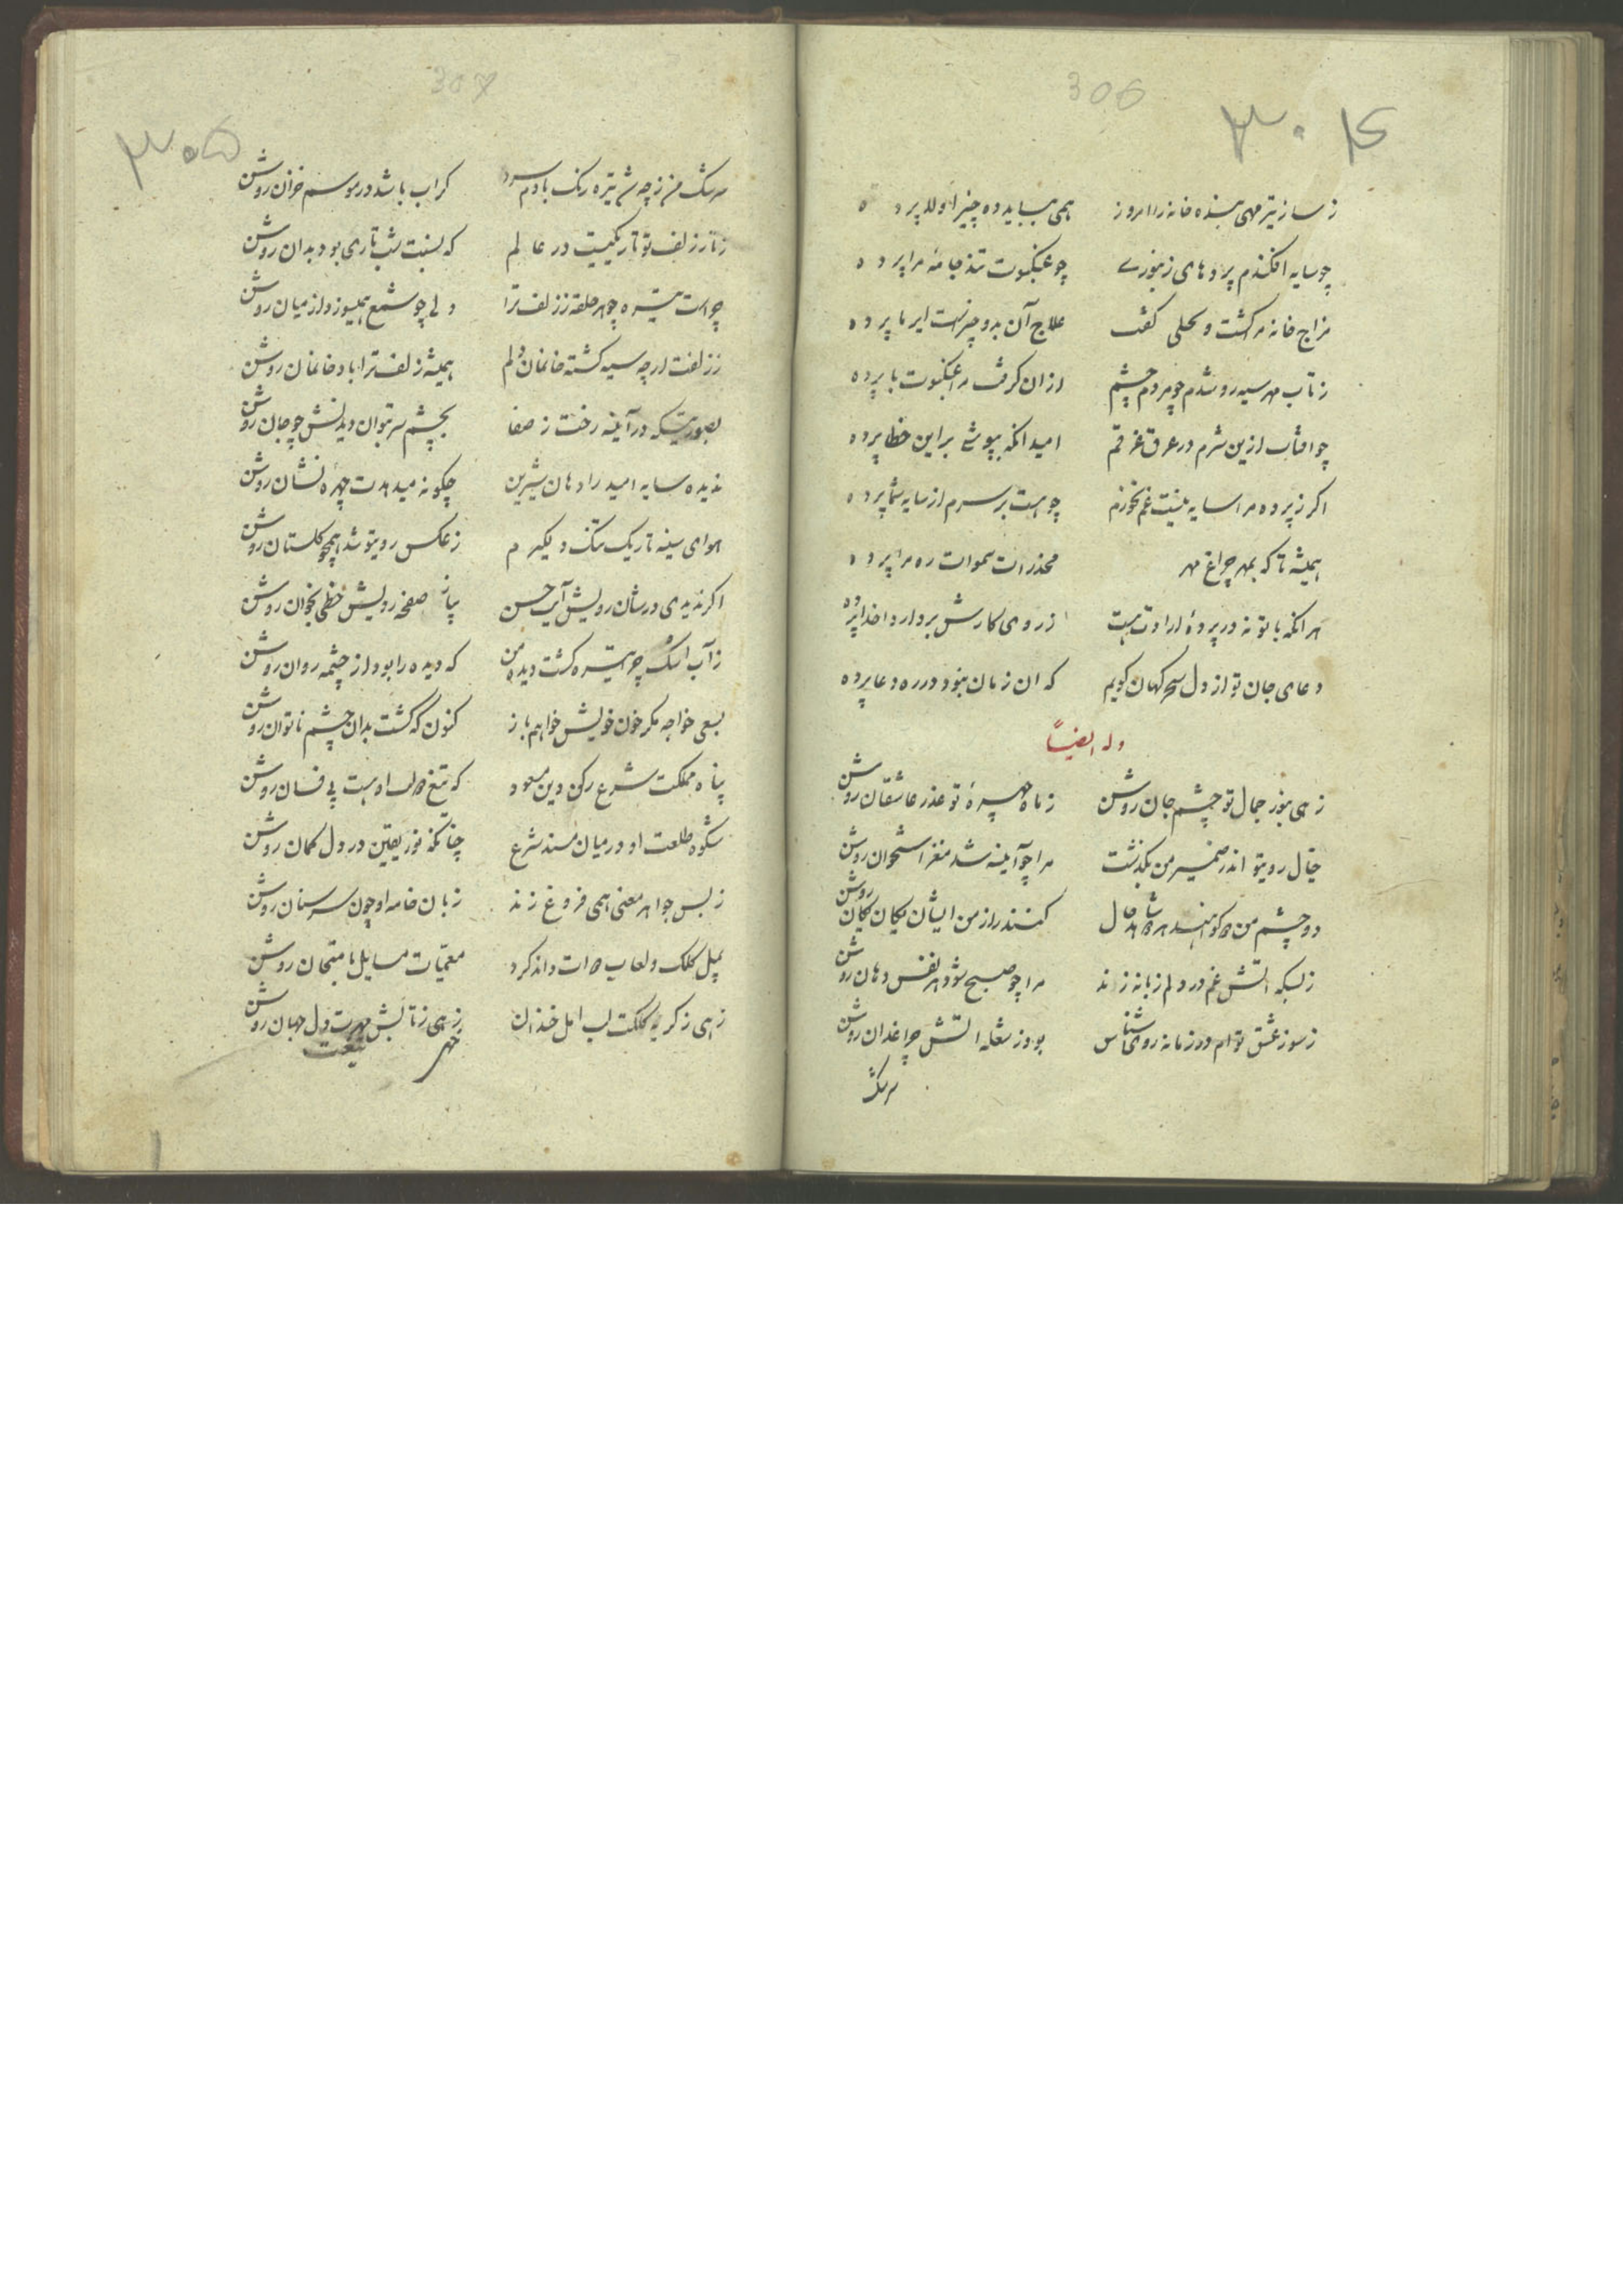 306
۳۰۴
ز ساز تیر مهی بنده خانه را امروز همی بباید ده چیز اولا پرده
چو سایه افکندم پردهای زنبوری چو عنکبوت تند جامهٔ مرا پرده
مزاج خانه مر کشت و کفت علاج آن بدو چیزست ایر یا پرده
ز تاب مهر سیه رو شدم چو مردم چشم ازان کرفت مرا عنکبوت با پرده
چو افتاب ازین شرم در عرق غرقم امید انکه بپوشی براین خطا پرده
اکر ز پرده مرا سایه نیست غم نخورم چو هست بر سرم از سایه شما پرده
همیشه تا که بمهر چراغ مهر مخدرات سموات ره مرا پرده
هر انکه با تو نه در پردهٔ ارادت هست ز روی کارش بردارد خدا پرده
دعای جان تو از دل سحرکهان کویم که ان زمان نبود در ره دعا پرده
وله ایضاً
زهی بنور جمال تو چشم جان روشن ز ماه چهرهٔ تو عذر عاشقان روشن
خیال رویتو اندر ضمیر من بکذشت مرا چو آینه شد مغز استخوان روشن
دو چشم من کو اهند بر حال کنند راز من ایشان یکان یکان روشن
زبسکه اتش غم در دلم زبانه زند مرا چو صبح شود هر نفس دهان روشن
ز سوز عشق توام در زمانه روی شناس بود ز شعله اتش چراغدان روشن
سرشک
307
۳۰۵
سرشک من ز چه شد تیره رنک با دم سرد کر اب باشد در موسم خزان روشن
ز تار زلف تو تاریکیست در عالم که نسبت شب تاری بود بدان روشن
چراست تیره چو هر حلقه ز زلف ترا دلی چو شمع همیسوزد از میان روشن
ز زلفت ار چه سیه کشته خانمان دلم همیشه زلف ترا باد خانمان روشن
بصورتیکه در آینه رخت ز صفا بچشم سر بتوان دیدنش چو جان روشن
ندیده سایه امید را دهان شیرین چکونه میدهدت چهره نشان روشن
هوای سینه تاریک تنک دیکرم ز عکس رویتو شد همچو کلستان روشن
اکر ندیدی در شان رویش آیت حسن بیا ز صفحه رویش خطی بخوان روشن
ز آب اشک چرا تیره کشت دیده من که دیده را بود از چشمه روان روشن
بسعی خواجه مکر خون خویش خواهم باز کنون که کشت بدان چشم ناتوان روشن
پناه مملکت شرع رکن دین مسعود که تیغ او هست بی فسان روشن
شکوه طلعت او در میان مسند شرع چنانکه نور یقین در دل کمان روشن
ز بس جواهر معنی همی فروغ زند زبان خامه او چون سر سنان روشن
بمیل کلک و لعاب داند کرد معمیات مسایل بامتحان روشن
زهی ز کریهٔ کلکت لب امل خندان زهی ز تابش مهرت دل جهان روشن